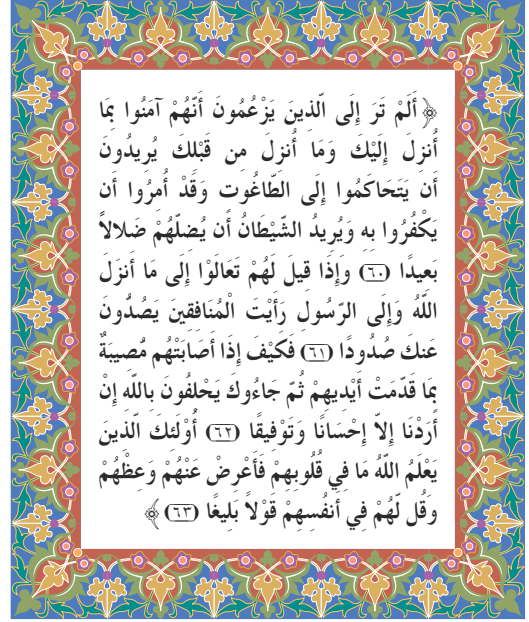 ﴿ أَلَمْ تَرَ إِلَى الّذِينَ يَزْعُمُونَ أَنّهُمْ آمَنُوا بِمَا
أُنزِلَ إِلَيْكَ وَمَا أُنزِلَ مِن قَبْلِك يُرِيدُونَ
أَن يَتَحَاكَمُوا إِلَى الطّاغُوتِ وَقَدْ أُمِرُوا أَن
يَكْفُرُوا بِهِ وَيُرِيدُ الشّيْطَانُ أَن يُضِلّهُمْ ضَلالاً
بَعِيدًا (٦٠) وَإِذَا قِيلَ لَهُمْ تَعَالَوْا إِلى مَا أَنزَلَ
اللّهُ وَإِلَى الرّسُولِ رَأَيْتَ الْمُنَافِقِينَ يَصُدُّونَ
عَنكَ صُدُودًا (٦١) فَكَيْفَ إِذَا أَصَابَتْهُم مُّصِيبَةٌ
بِمَا قَدّمَتْ أَيْدِيهِمْ ثُمّ جَاءُوكَ يَحْلِفُونَ بِاللّهِ إِنْ
أَرَدْنَا إِلاّ إِحْسَانًا وَتَوْفِيقًا (٦٢) أُوْلَئِكَ الّذِينَ
يَعْلَمُ اللّهُ مَا فِي قُلُوبِهِمْ فَأَعْرِضْ عَنْهُمْ وَعِظْهُمْ
وَقُل لّهُمْ فِي أَنفُسِهِمْ قَوْلاً بَلِيغًا (٦٣) ﴾